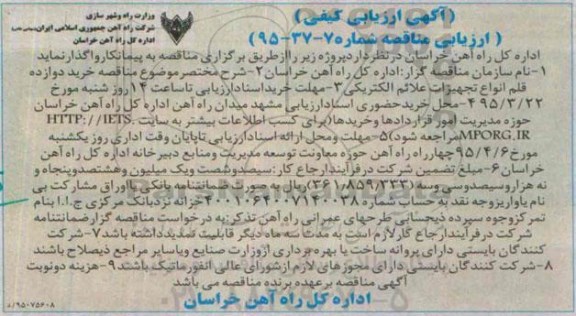 وزارت راه وشهر سازی
شرکت راه آهن جمهوری اسلامی ایران(سهامی خاص)
اداره کل راه آهن خراسان
(آگهی ارزیابی کیفی)
( ارزیابی مناقصه شماره۷-۳۷-۹۵)
اداره کل راه آهن خراسان در نظر دارد پروژه زیر را از طریق برگزاری مناقصه به پیمانکار واگذار نماید
۱-نام سازمان مناقصه گزار:اداره کل راه آهن خراسان۲-شرح مختصر موضوع مناقصه خرید دوازده
قلم انواع تجهیزات علائم الکتریکی۳-مهلت خرید اسناد ارزیابی تا ساعت ۱۴روز شنبه مورخ
۹۵/۳/۲۲ ۴-محل خرید حضوری اسناد ارزیابی مشهد میدان راه آهن اداره کل راه آهن خراسان
حوزه مدیریت امور قراردادها وخریدها(برای کسب اطلاعات بیشتر به سایت HTTP://IETS.
MPORG.IR مراجعه شود)۵-مهلت ومحل ارائه اسناد ارزیابی تا پایان وقت اداری روز یکشنبه
مورخ ۹۵/۴/۶ چهارراه راه آهن حوزه معاونت توسعه مدیریت ومنابع دبیرخانه اداره کل راه آهن
خراسان۶-مبلغ تضمین شرکت در فرآیند ارجاع کار:سیصدوشصت ویک میلیون وهشتصدوپنجاه و
نه هزاروسیصدوسی وسه(۳۶۱٫۸۵۹٫۳۳۳)ریال به صورت ضمانتنامه بانکی یا اوراق مشارکت بی
نام یا واریز وجه نقد به حساب شماره ۴۰۰۱۰۶۴۰۰۷۱۴۰۰۳۸ خزانه نزد بانک مرکزی ج.ا.ا بنام
تمرکز وجوه سپرده ذیحسابی طرحهای عمرانی راه آهن تذکر:به درخواست مناقصه گزار ضمانتنامه
شرکت در فرآیند ارجاع کار لازم است به مدت سه ماه دیگر قابلیت تمدید داشته باشد۷-شرکت
کنندگان بایستی دارای پروانه ساخت یا بهره برداری از وزارت صنایع ویا سایر مراجع ذیصلاح باشند
۸-شرکت کنندگان بایستی دارای مجوزهای لازم از شورای عالی انفورماتیک باشند۹-هزینه دونوبت
آگهی مناقصه بر عهده برنده مناقصه می باشد
اداره کل راه آهن خراسان
۹۵۰۷۵۶۰۸/د